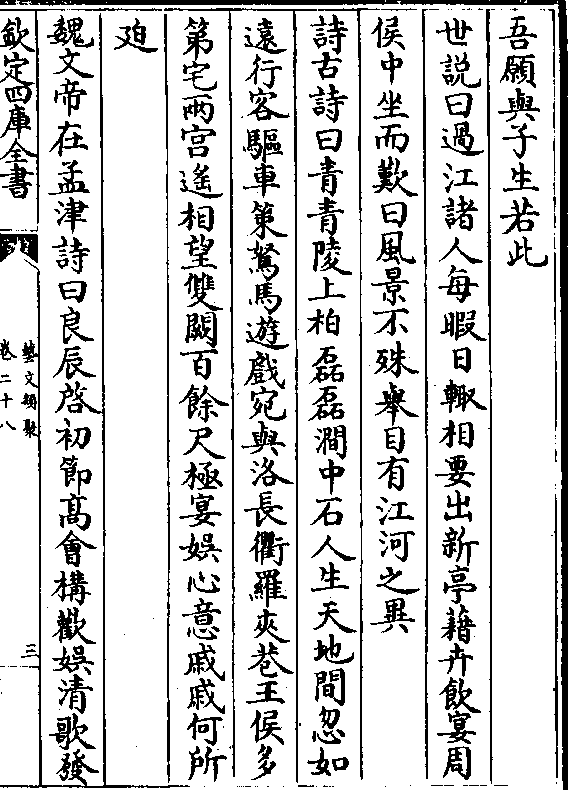 吾願與子生若此
世説曰過江諸人每暇日輙相要出新亭藉卉飲宴周
侯中坐而歎曰風景不殊舉目有江河之異
詩古詩曰青青陵上柏磊磊澗中石人生天地間忽如
遠行客驅車策駑馬遊戲宛與洛長衢羅夾巷王侯多
第宅兩宫遙相望雙闕百餘尺極宴娯心意戚戚何所
廹
魏文帝在孟津詩曰良辰啓初節髙會構歡娯清歌發
欽定四庫全書
藝文類聚
卷二十八
三